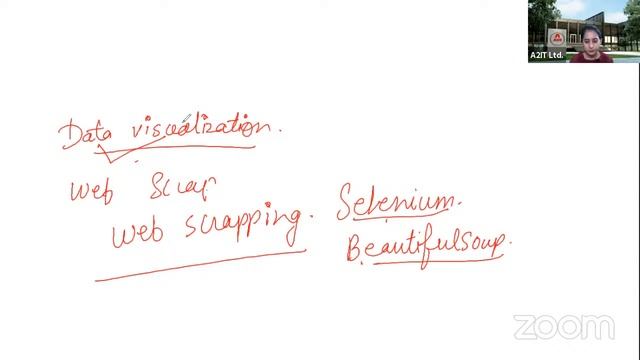 A2IT Ltd.
Data visualization.
Web Scrap
Web scrapping.
Selenium.
Beautifulsoup.
zoom